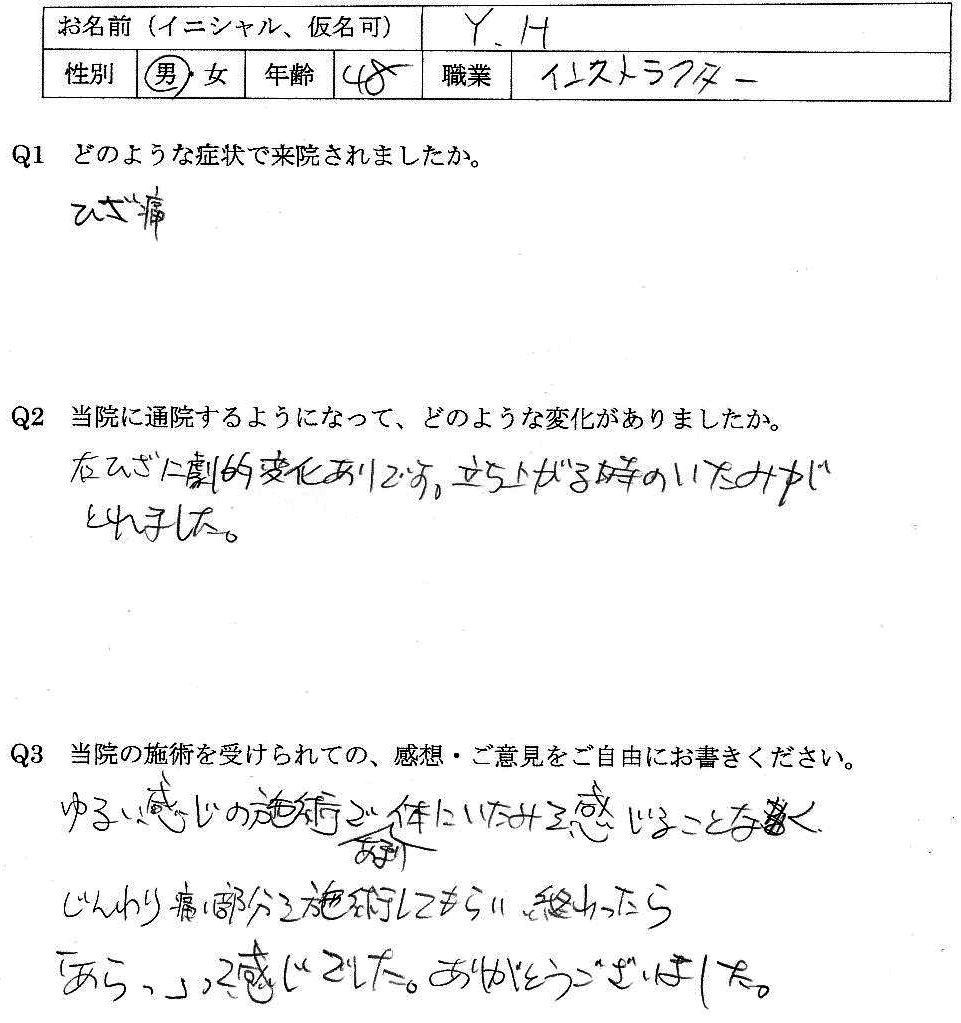 お名前（イニシャル、仮名可） Y.H
性別 男・女 年齢 48 職業 インストラクター
Q1 どのような症状で来院されましたか。
ひざ痛
Q2 当院に通院するようになって、どのような変化がありましたか。
右ひざに劇的変化ありです。立ち上がる時のいたみが
とれました。
Q3 当院の施術を受けられての、感想・ご意見をご自由にお書きください。
ゆるい感じの施術で体にいたみを感じることなく、
あまり
じんわり痛い部分を施術してもらい、終わったら
「あらっ」って感じでした。ありがとうございました。